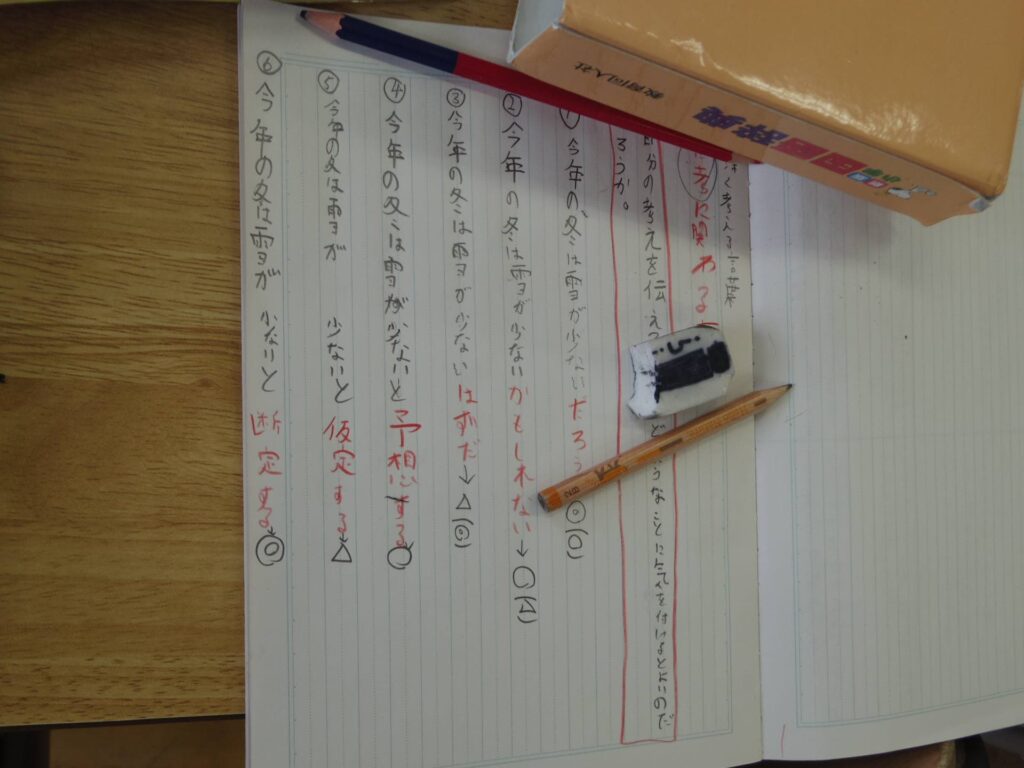 教育同人社
く考える言葉
考に関わる
分の考えを伝え うなことに気を付けるとよいのだ
ろうか。
① 今年の冬は雪が少ないだろう ◎(○)
②今年の冬は雪が少ないかもしれない→○(△)
③今年の冬は雪が少ないはずだ→△(◎)
④今年の冬は雪が少ないと予想する→○
⑤今年の冬は雪が 少ないと仮定する→△
⑥今年の冬は雪が 少ないと断定する→◎